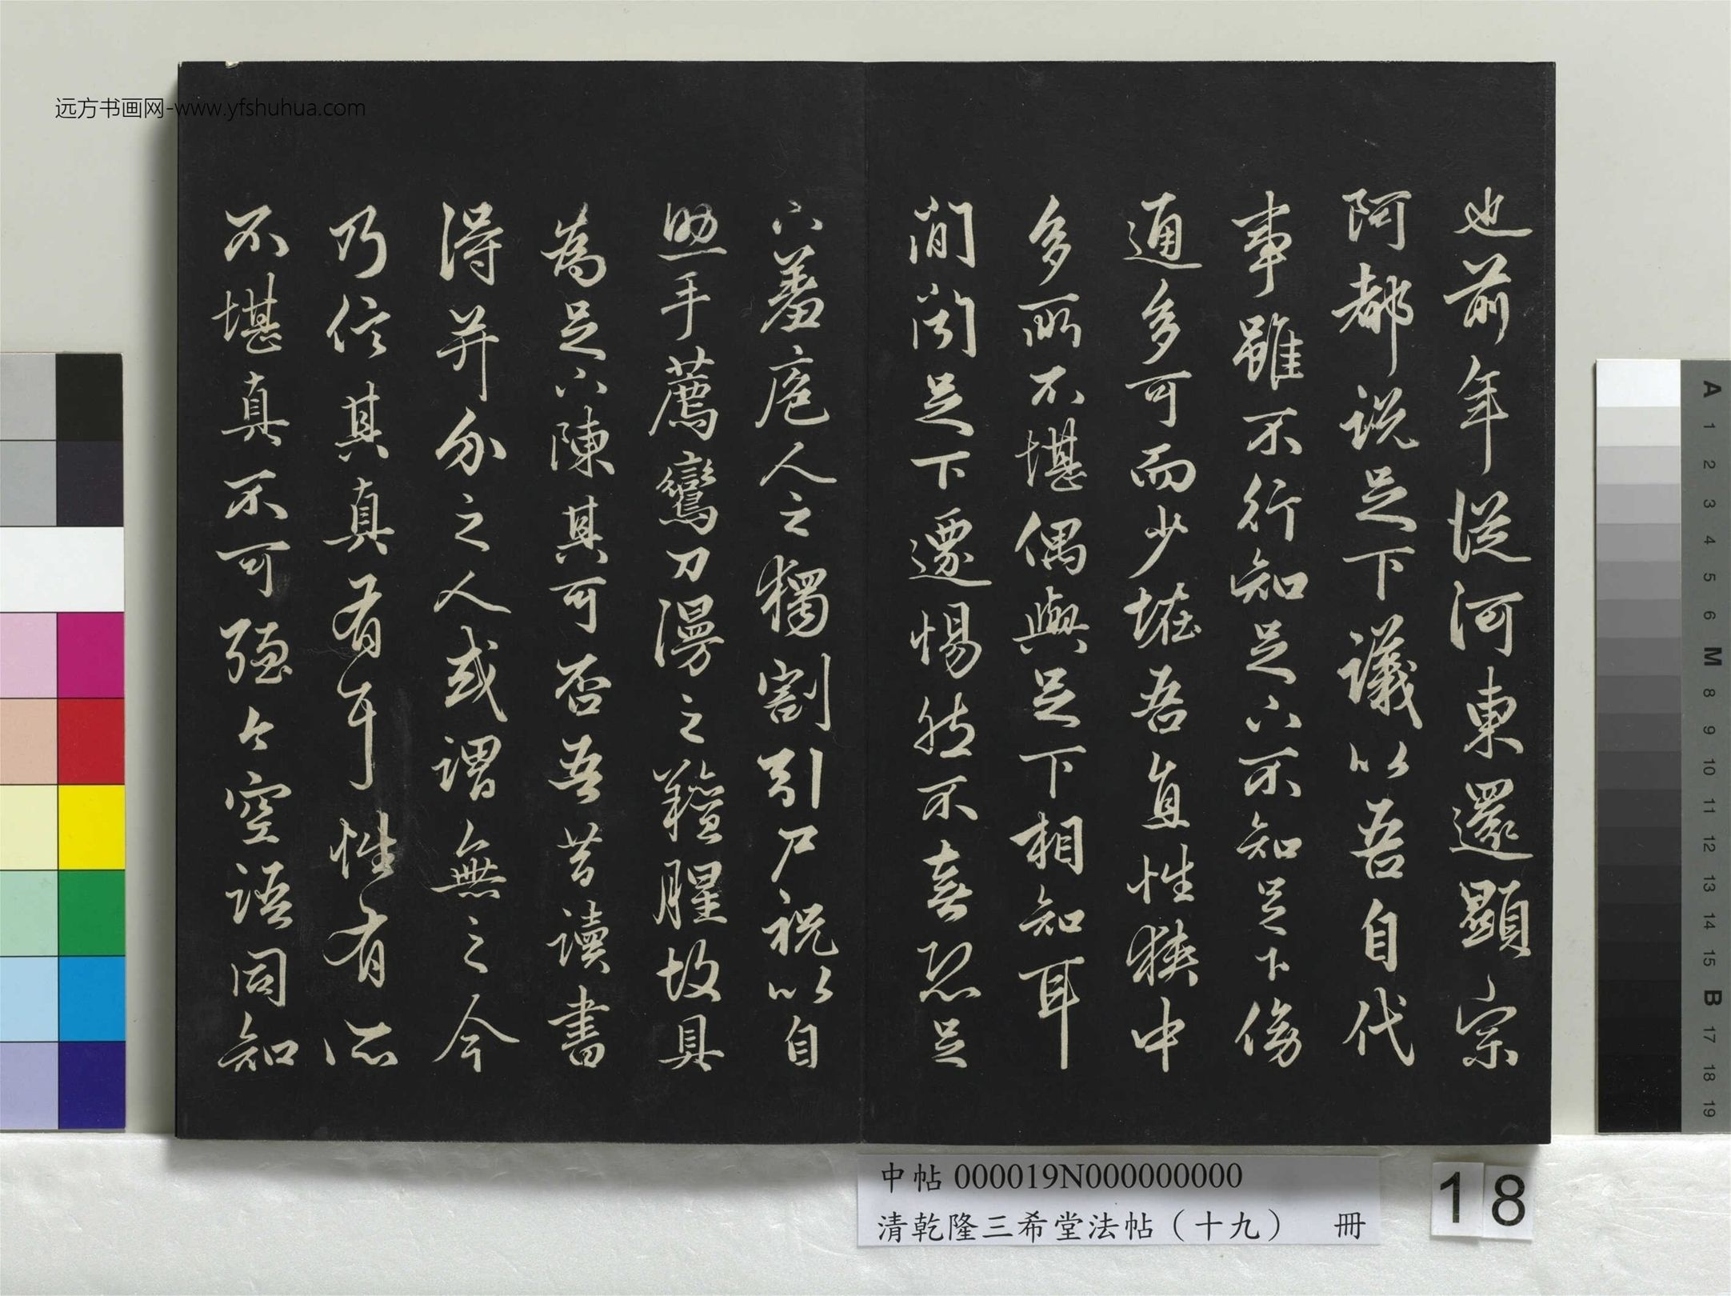 也前年從河東還顯宗
阿都說足下議以吾自代
事雖不行知足下不知足下傍
通多可而少怪吾直性狹中
多所不堪偶與足下相知耳
間聞足下遷惕然不喜恐足
下羞庖人之獨割引尸祝以自
助手薦鸞刀漫之羶腥故具
為足下陳其可否吾昔讀書
得并介之人或謂無之今
乃信其真有耳性有所
不堪真不可強今空語同知
远方书画网-www.yfshuhua.com
中帖 000019N000000000
清乾隆三希堂法帖（十九） 冊
18
A
1
2
3
4
5
6
M
8
9
10
11
12
13
14
15
B
17
18
19